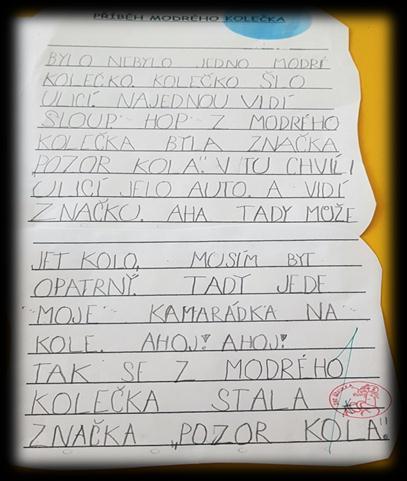 PŘÍBĚH MODRÉHO KOLEČKA
BYLO NEBYLO JEDNO MODRÉ
KOLEČKO. KOLEČKO ŠLO
ULICÍ. NAJEDNOU VIDÍ
SLOUP HOP Z MODRÉHO
KOLEČKA BYLA ZNAČKA
„POZOR KOLA". V TU CHVÍLI
ULICÍ JELO AUTO. A VIDÍ
ZNAČKU. AHA TADY MŮŽE
JET KOLO. MUSÍM BYT
OPATRNÝ. TADY JEDE
MOJE KAMARÁDKA NA
KOLE. AHOJ! AHOJ!
TAK SE Z MODRÉHO
KOLEČKA STALA
ZNAČKA „POZOR KOLA."